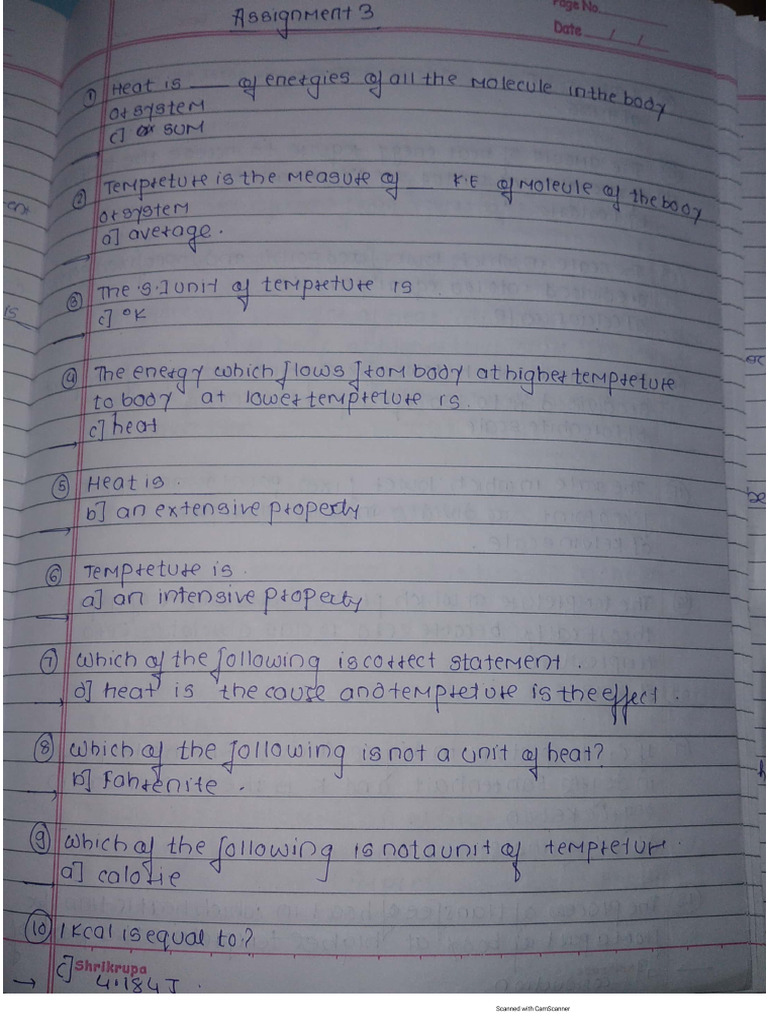 Assignment 3
Page No.
Date / /
① Heat is ___ of energies of all the Molecule in the body
or system
c] sum
② Tempreture is the measure of ___ K.E of Molecule of the body
or system
a] average.
③ The S.I unit of tempreture is.
c] °K
④ The energy which flows from body at higher tempreture
to body at lower tempreture is.
c] heat
⑤ Heat is.
b] an extensive property
⑥ Tempreture is.
a] an intensive property
⑦ Which of the following is correct statement.
d] heat is the cause and tempreture is the effect.
⑧ Which of the following is not a unit of heat?
b] Fahrenite.
⑨ Which of the following is not a unit of
a] calorie
⑩ 1 Kcal is equal to?
c] Shrikrupa
4.184J.
Scanned with CamScanner